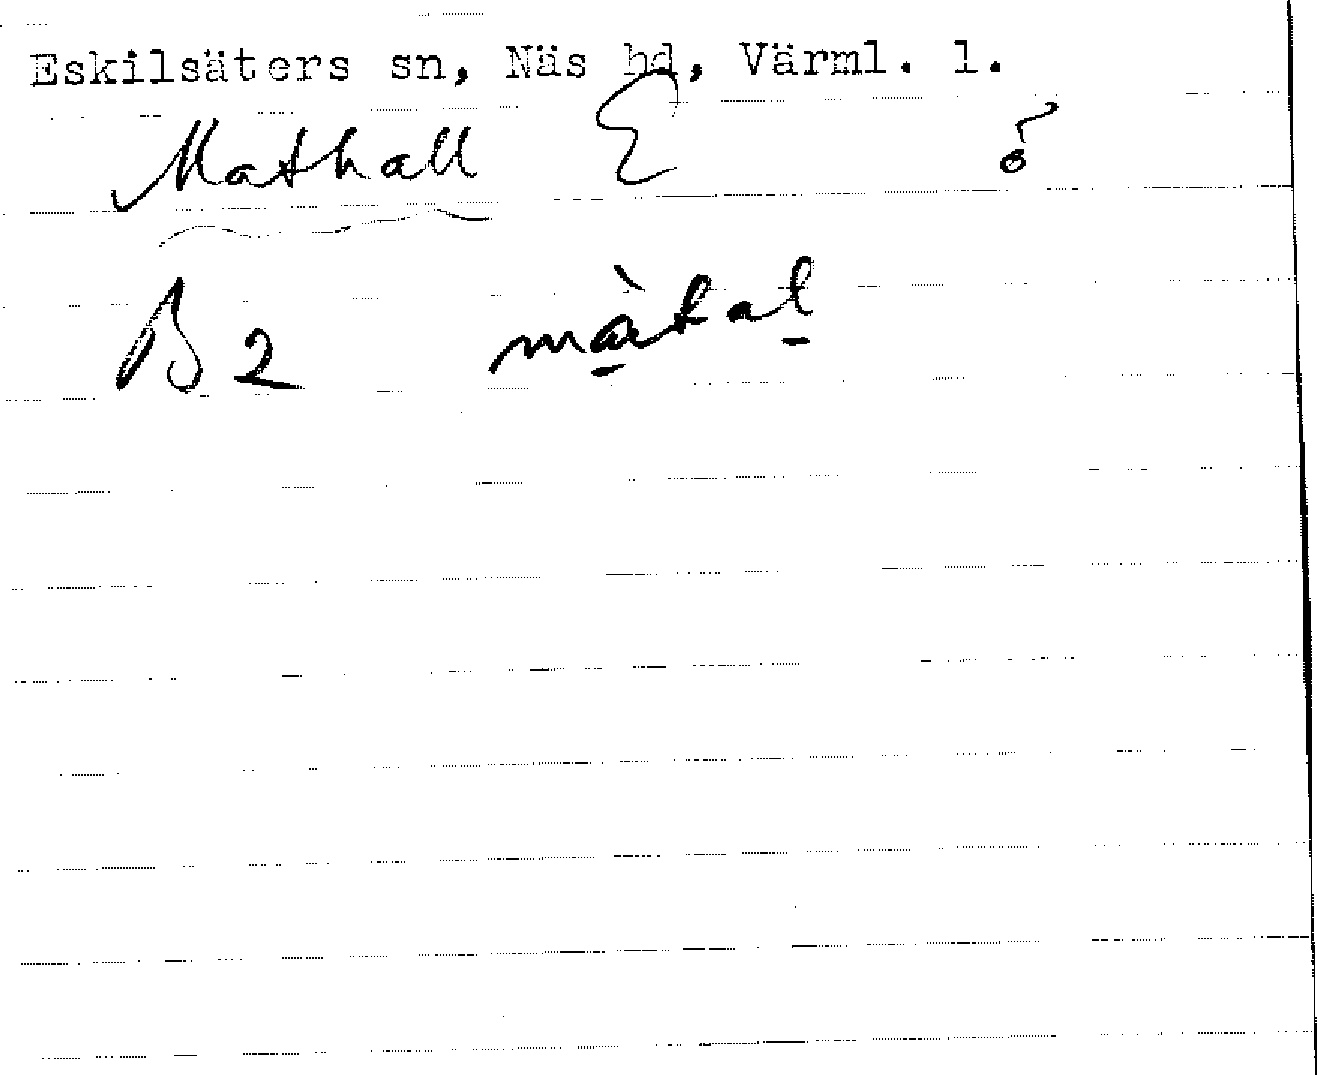 Eskilsäters sn, Näs hd, Värml. l.
Mathall E ð
B 2 màtal